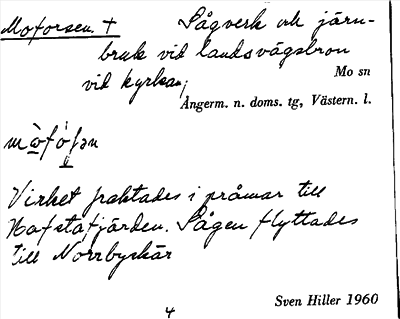 Moforsen. + Sågverk och järn-
bruk vid landsvägsbron
vid kyrkan;
Mo sn
Ångerm. n. doms. tg, Västern. l.
Virket fraktades i pråmar till
Hafstafjärden. Sågen flyttades
till Norrbyskär
4
Sven Hiller 1960